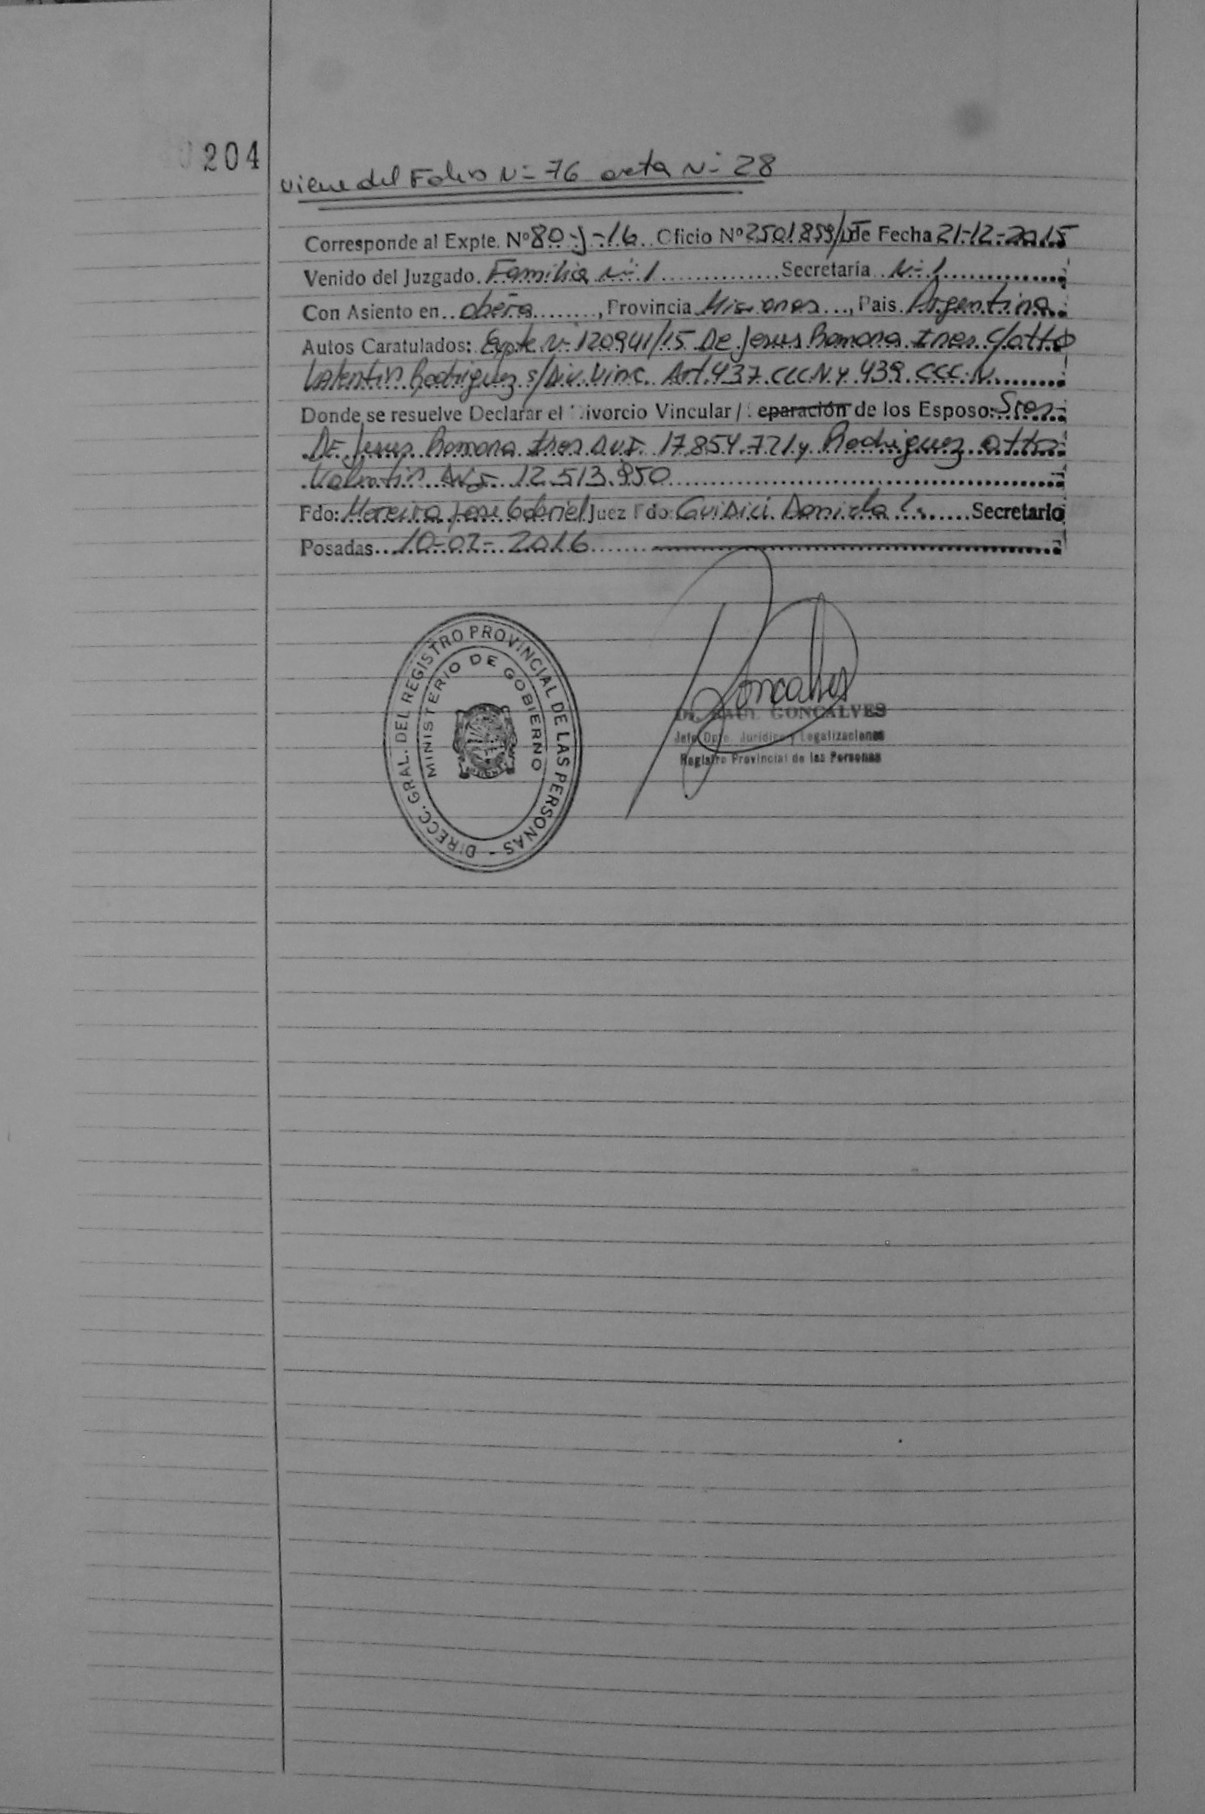 204
viene del Folio Nº 76 acta Nº 28
Corresponde al Expte. Nº 80-J-16 Oficio Nº 2501859/15 de Fecha 21-12-2015
Venido del Juzgado Familia Nº 1 Secretaría Nº 1
Con Asiento en Oberá, Provincia Misiones, Pais Argentina
Autos Caratulados: Expte Nº 120941/15 De Jesus Ramona Ines C/Otto
Valentin Rodriguez s/Div. Vinc. Art. 437 CCCN y 439 CCC.N
Donde se resuelve Declarar el Divorcio Vincular / Separación de los Esposo: Sres
De Jesus Ramona Ines D.N.I. 17.854.721 y Rodriguez Otto
Valentin D.N.I. 12.513.950
Fdo: Moreira Jose Gabriel Juez Fdo: Guidici Daniela Secretario
Posadas 10-02-2016
DIRECC. GRAL. DEL REGISTRO PROVINCIAL DE LAS PERSONAS -
MINISTERIO DE GOBIERNO
Goncalves
Dr. RAUL GONCALVES
Jefe Dpto. Jurídico y Legalizaciones
Registro Provincial de las Personas